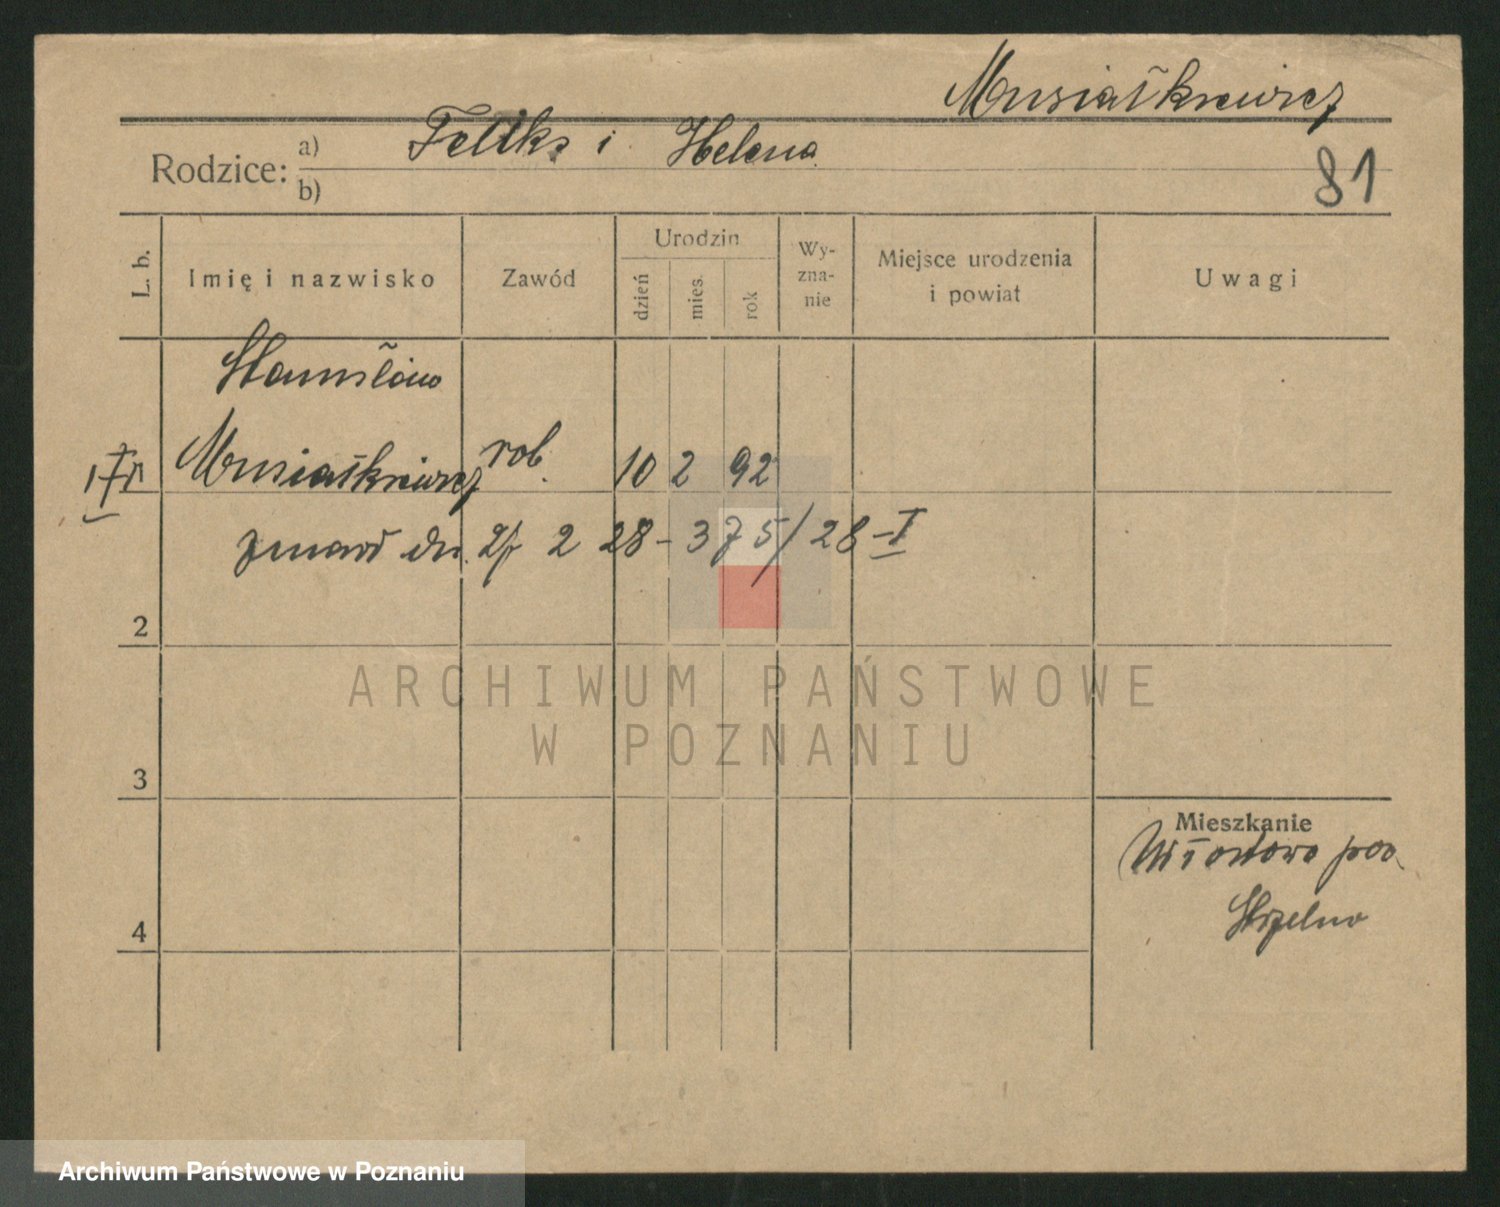 Musiałkiewicz
Rodzice: a) Feliks i Helena
b)
81
L. b.
Imię i nazwisko
Zawód
Urodzin
dzień
mies.
rok
Wy-
zna-
nie
Miejsce urodzenia
i powiat
Uwagi
Stanisław
Musiałkiewicz rob. 10 2 92
zmarł dn. 2 28 - 375/28 - I
2
3
4
Mieszkanie
Włostowo pow
Strzelno
ARCHIWUM PAŃSTWOWE
W POZNANIU
Archiwum Państwowe w Poznaniu